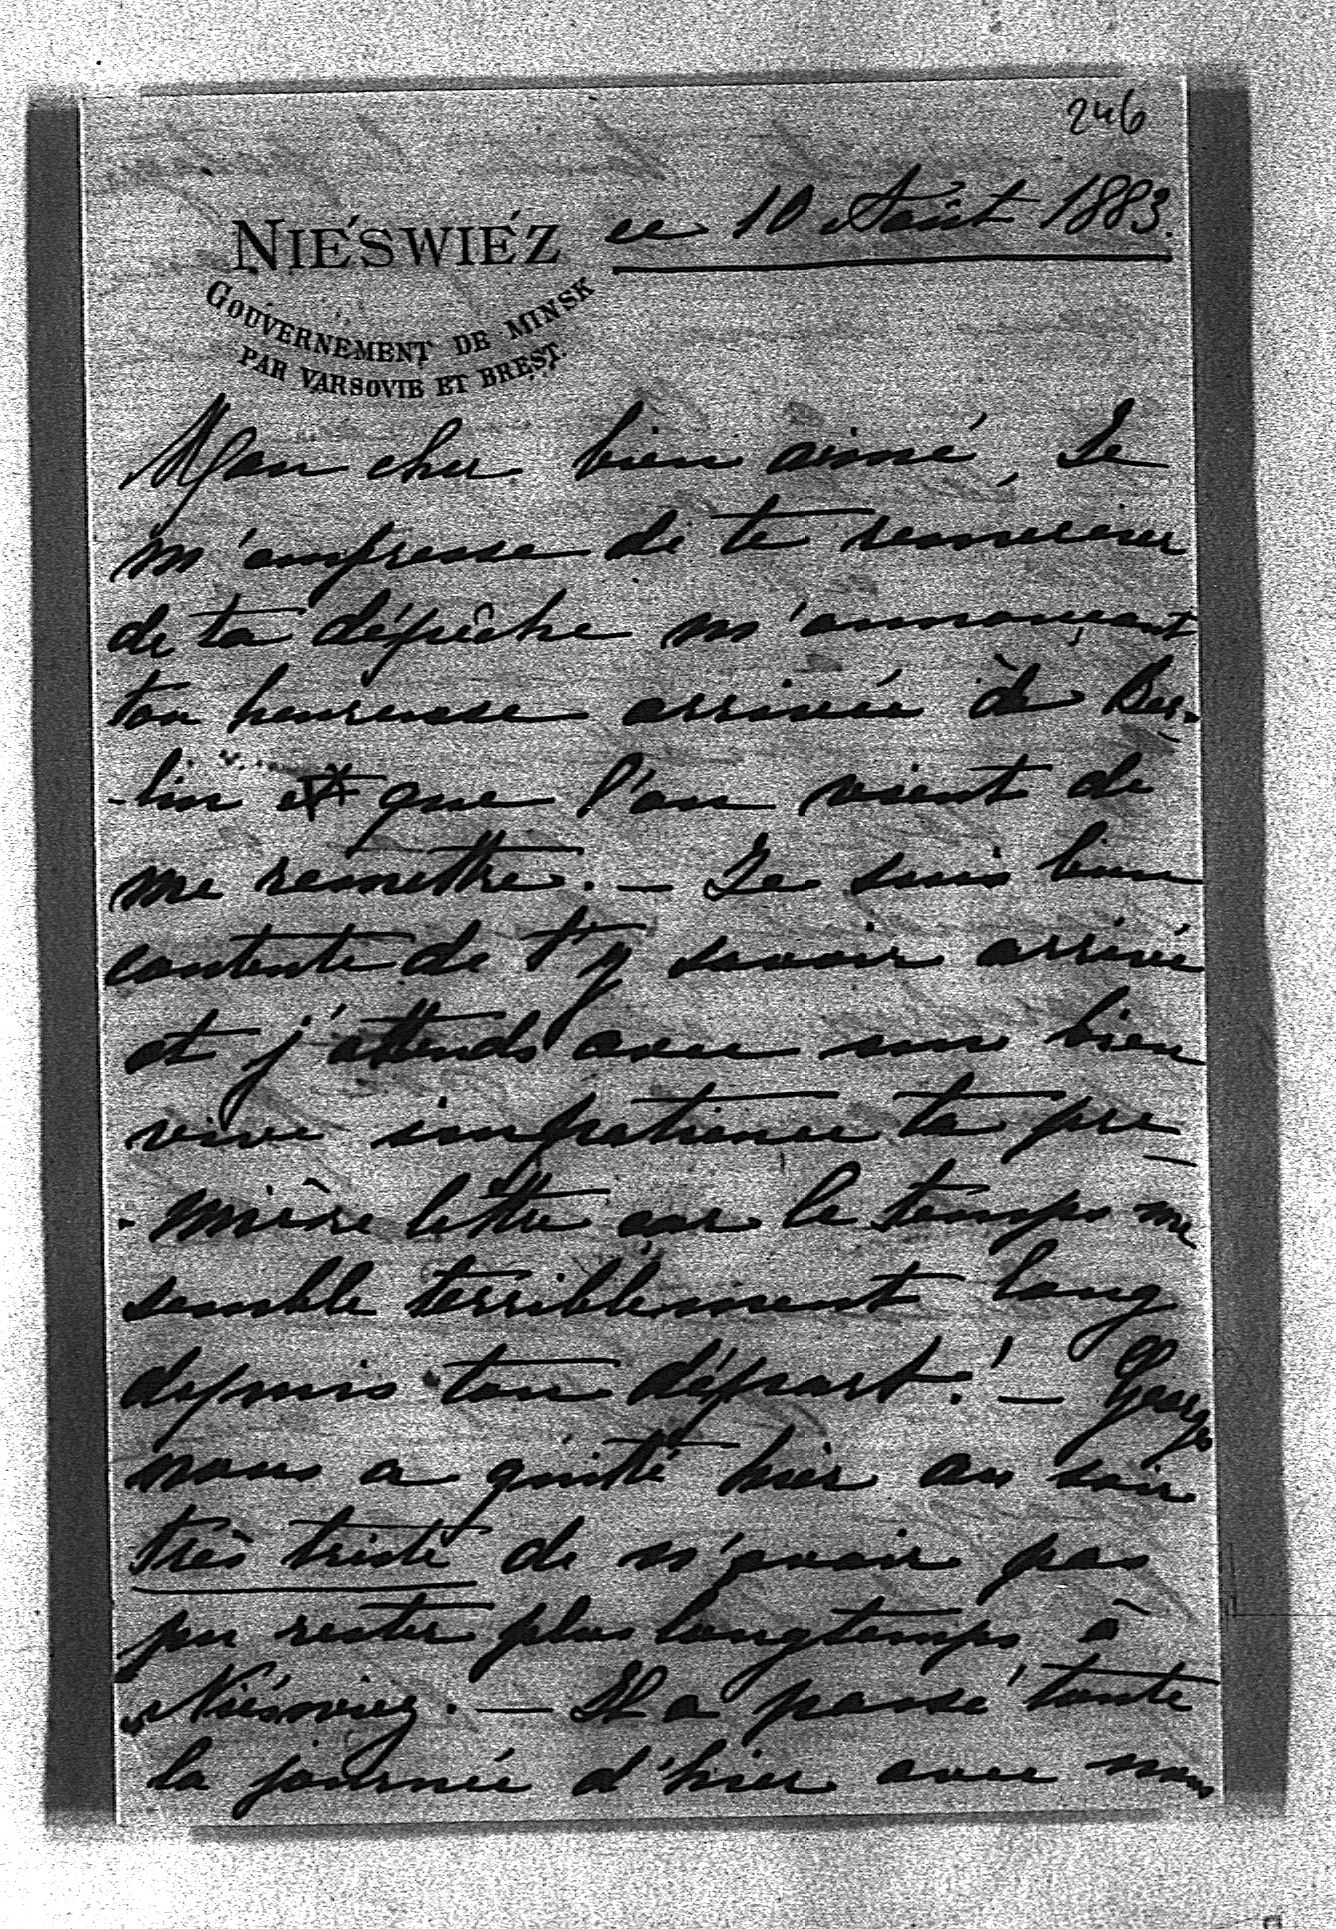 246
NIEŚWIEŻ ce 10 Août 1883.
GOUVERNEMENT DE MINSK
PAR VARSOVIE ET BREST.
Mon cher bien aimé, Je
m'empresse de te remercier
de ta dépêche m'annonçant
ton heureuse arrivée à Ber-
-lin et que l'on vient de
me remettre. — Je suis bien
contente de t'y savoir arrivé
et j'attends avec une bien
vive impatience ta pre-
-mière lettre car le temps me
semble terriblement long
depuis ton départ! — Georges
nous a quitté hier au soir
très triste de n'avoir pas
pu rester plus longtemps à
Nieświez. — Il a passé toute
la journée d'hier avec nous